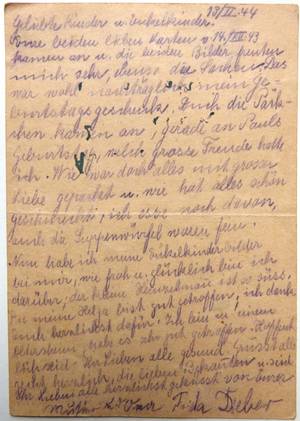 13/II. 44
Geliebte Kinder u. Enkelkinder.
Eure beiden lieben Karten v. 14/XII 43
kamen an u. die beiden Bilder freuten
mich sehr, ebenso die Sachen. Das
war wohl nachträglich mein Ge-
burtstagsgeschenk. Auch die Päk-
chen kamen an, gerade an Pauls
Geburtstag, welch grosse Freude hatte
ich. Wie war doch alles mit grosser
Liebe gepackt u. wie hat alles schön
geschmeckt, ich esse noch davon,
auch die Suppenwürfel waren fein.
Nun habe ich meine Enkelkinder Bilder
bei mir, wie froh u. glücklich bin ich
darüber, der kleine ist so süss.
Du meine bist gut getroffen, ich danke
euch herzlichst dafür. Ich bin u.
habe es sehr gut getroffen. Hoffent-
lich seid Ihr Lieben alle gesund. Grüsst alle
herzlich, die lieben Bekannten u. seid
Ihr Lieben alle herzlichst geküsst von eurer
Mutter u. Oma Frida